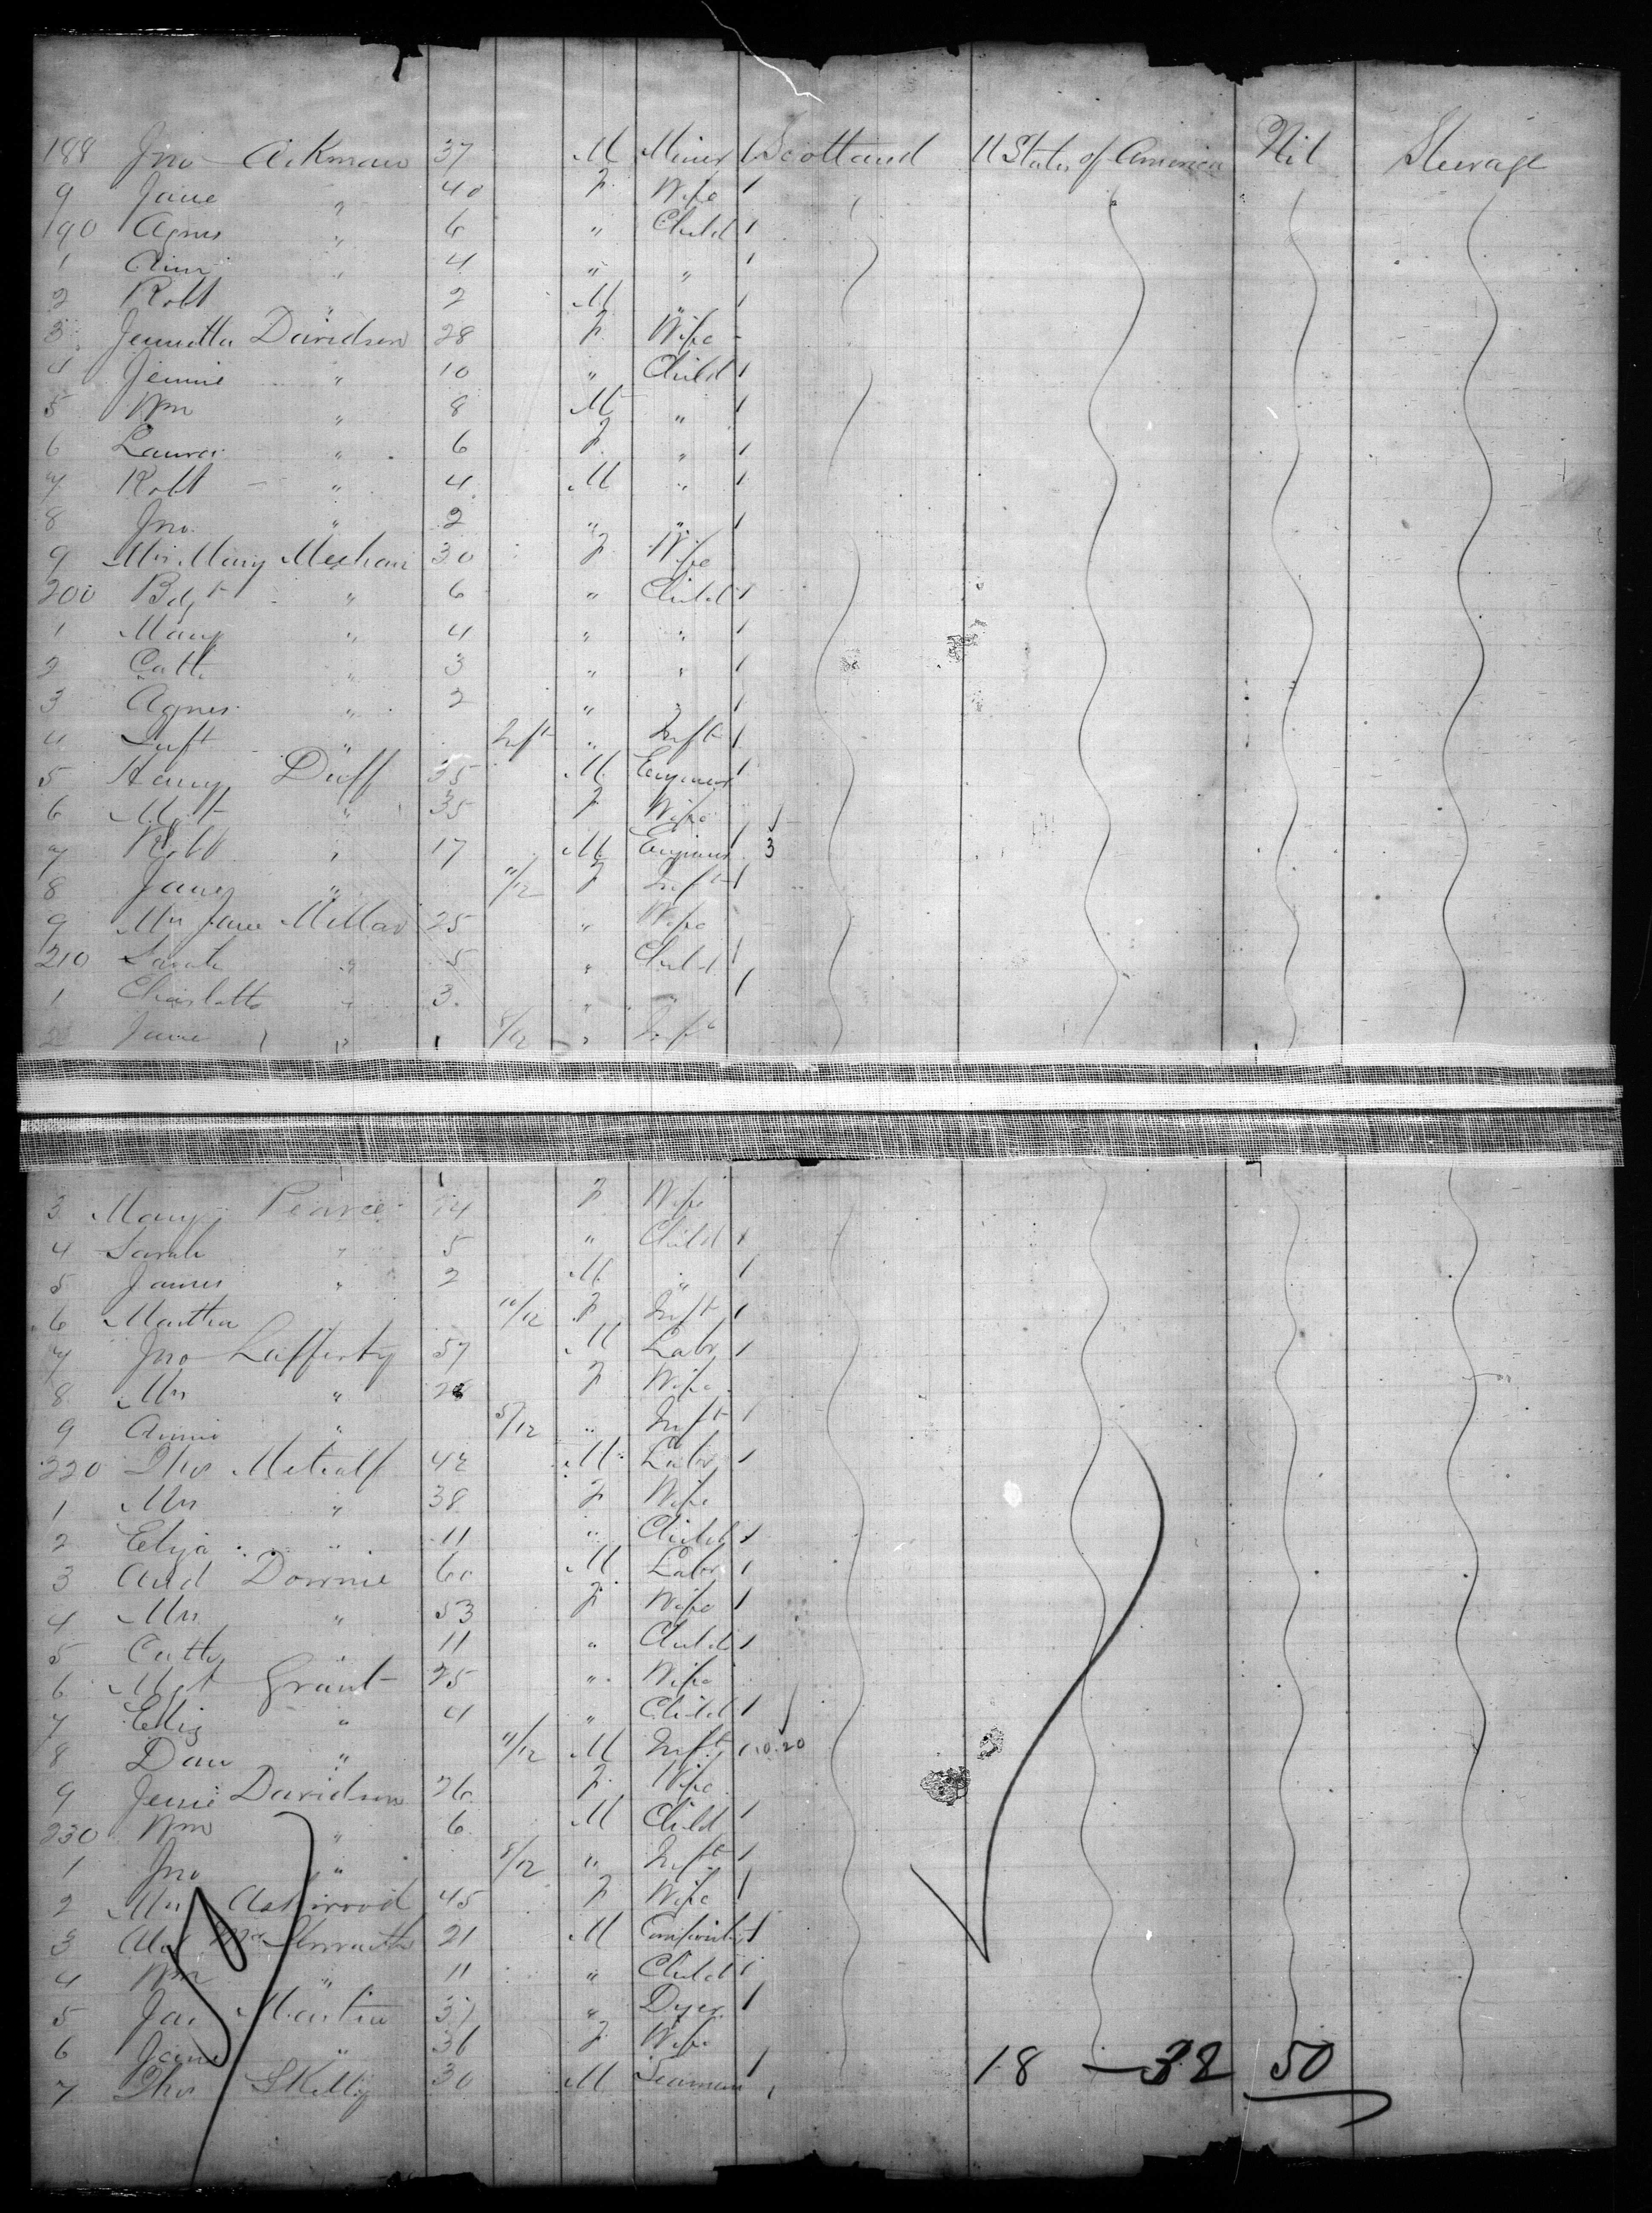 188 Jno Aikman 37 M Miner 1 Scotland U States of America Nil Steerage
9 Jane " 40 F Wife 1
190 Agnes " 6 " Child 1
1 " 4 " " 1
2 Robt " 2 M " 1
3 Davidson 28 F Wife -
4 Jennie " 10 " Child 1
5 Wm " 8 M " 1
6 Laura " 6 F " 1
7 Robt " 4 M " 1
8 Jno " 2 " " 1
9 Mrs Mary Meehan 30 F Wife
200 Bdgt " 6 " Child 1
1 Mary " 4 " " 1
2 Cath " 3 " " 1
3 Agnes " 2 " " 1
4 Inft " Inft " Inft 1
5 Duff 35 M Engineer 1
6 Mgt " 35 F Wife
7 Robt " 17 M Engineer 1 3
8 " 11/12 F Inft 1
9 Mrs Jane Millar 25 " Wife
210 Sarah " 5 " Child 1
1 Charlotte " 3 " " 1
2 Jane " 8/12 " Inft
3 Mary Pearce F Wife
4 Sarah " 5 " Child 1
5 James " 2 M " 1
6 Martha F Inft 1
7 Jno Lafferty 57 M Labr 1
8 Mrs " F Wife
9 Annie " 5/12 " Inft 1
220 Thos Metcalf 42 M Labr 1
1 Mrs " 38 F Wife
2 Eliza " 11 " Child 1
3 And Downie 60 M Labr 1
4 Mrs " 53 F Wife 1
5 Cath " 11 " Child 1
6 Mgt Grant 25 " Wife
7 Eliz " 4 " Child 1
8 Dan " 11/12 M Inft 1 10.20
9 Jessie Davidson 26 F Wife
230 Wm " 6 M Child 1
1 Jno " 8/12 " Inft 1
2 Mrs 45 F Wife 1
3 21 M 1
4 Wm " 11 " Child 1
5 Jas Martin 37 " Dyer 1
6 Jane " 36 F Wife
7 Thos Skelly 30 M Seaman 1 18 - 32 50